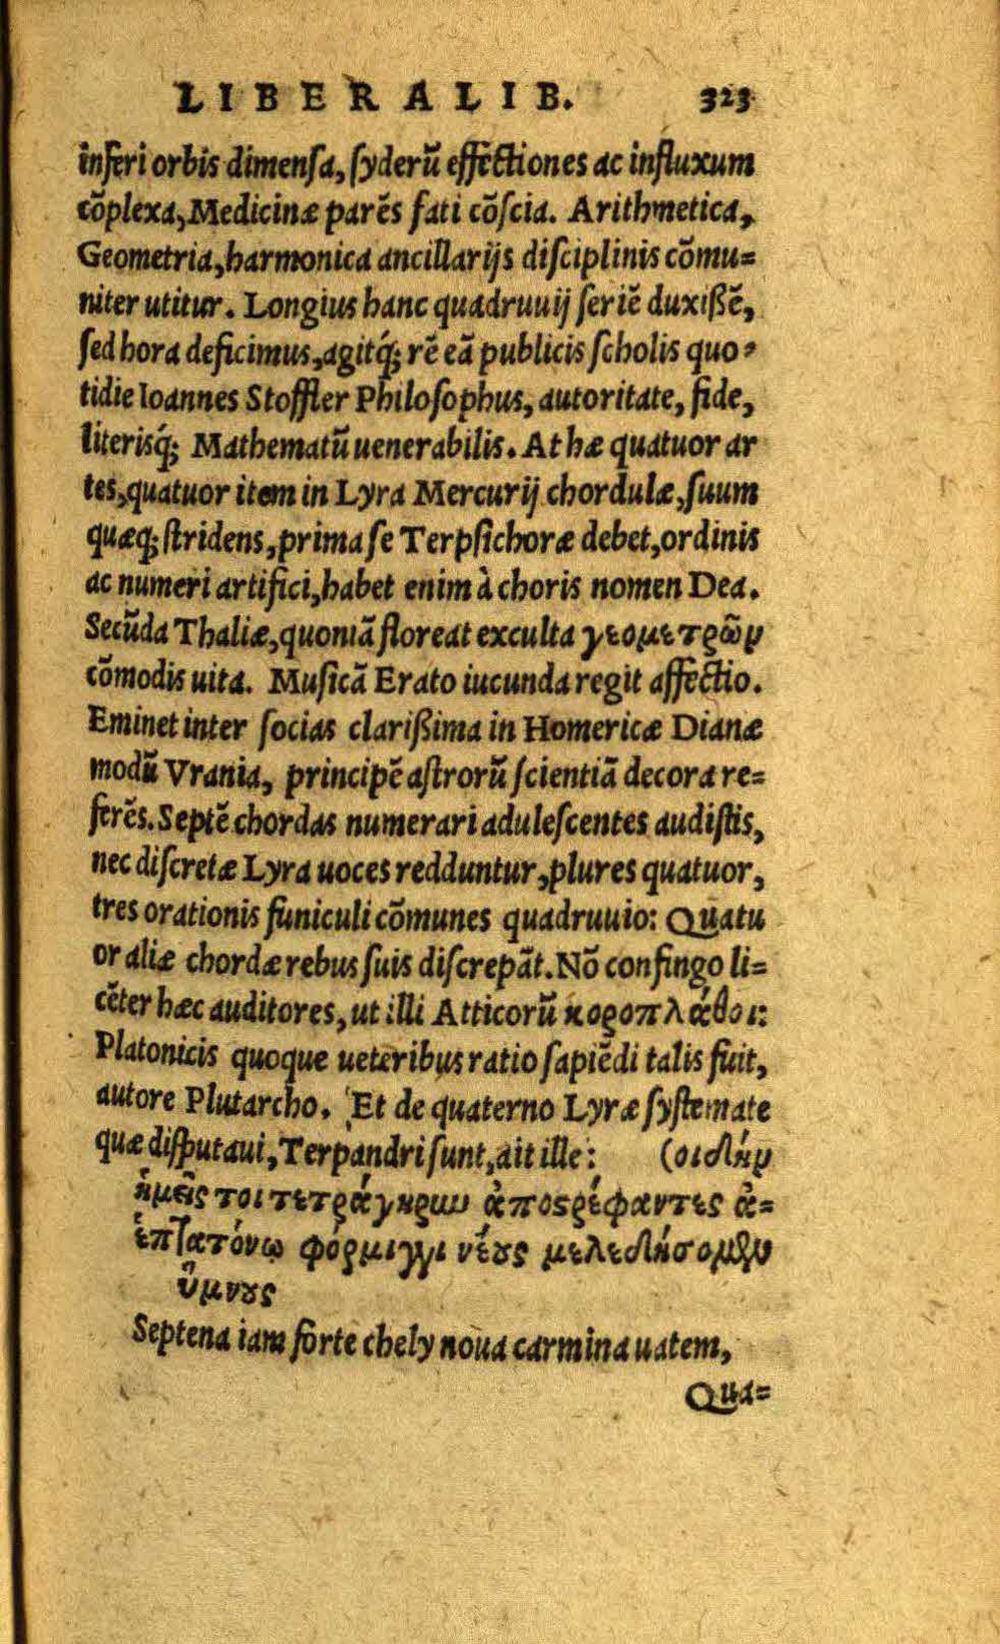 LIBERALIB. 323
inferi orbis dimensa, syderũ effectiones ac influxum
cõplexa, Medicinæ parẽs fati cõscia. Arithmetica,
Geometria, harmonica ancillarijs disciplinis cõmu=
niter utitur. Longius hanc quadruuij seriẽ duxißẽ,
sed hora deficimus, agitq́; rẽ eã publicis scholis quo=
tidie Ioannes Stoffler Philosophus, autoritate, fide,
literisq́; Mathematũ uenerabilis. At hæ quatuor ar
tes, quatuor item in Lyra Mercurij chordulæ, suum
quæq; stridens, prima se Terpsichoræ debet, ordinis
ac numeri artifici, habet enim à choris nomen Dea.
Secũda Thaliæ, quoniã floreat exculta γεομετρῶν
cõmodis uita. Musicã Erato iucunda regit affectio.
Eminet inter socias clarißima in Homericæ Dianæ
modũ Vrania, principẽ astrorũ scientiã decora re=
ferẽs. Septẽ chordas numerari adulescentes audistis,
nec discretæ Lyra uoces redduntur, plures quatuor,
tres orationis funiculi cõmunes quadruuio: Quatu
or aliæ chordæ rebus suis discrepãt. Nõ confingo li=
cẽter hæc auditores, ut illi Atticorũ κοροπλάθοι:
Platonicis quoque ueteribus ratio sapiẽdi talis fuit,
autore Plutarcho. Et de quaterno Lyræ systemate
quæ disputaui, Terpandri sunt, ait ille: (οιδὴν
ἡμεῖς τοι τετράγηρων ἀποςρέφαντες ἀ=
ἑπτατόνῳ φόρμιγγι νέους μελεδήσομεν
ὕμνους
Septena iam forte chely noua carmina uatem,
Qua=